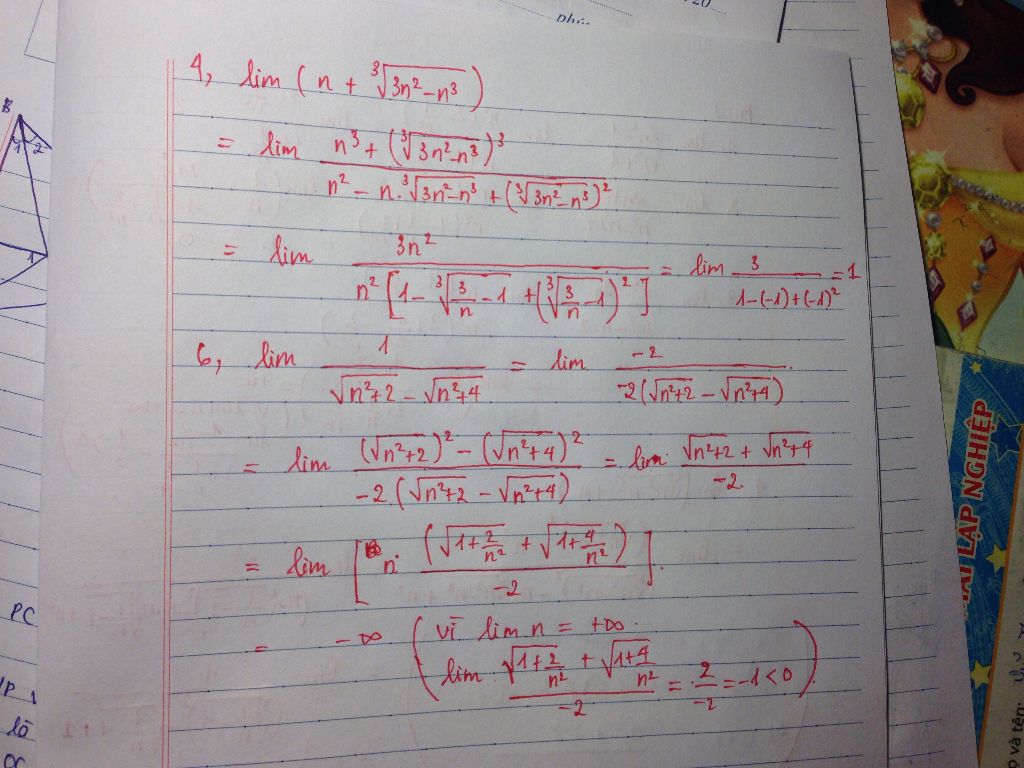 4, lim ( n + ∛(3n² – n³) )
= lim (n³ + (∛(3n² – n³))³) / (n² – n.∛(3n² – n³) + (∛(3n² – n³))²)
= lim 3n² / (n² [1 – ∛(3/n – 1) + (∛(3/n – 1))²]) = lim 3 / (1 – (–1) + (–1)²) = 1
6, lim 1 / (√(n²+2) – √(n²+4)) = lim –2 / (–2(√(n²+2) – √(n²+4)))
= lim ((√(n²+2))² – (√(n²+4))²) / (–2(√(n²+2) – √(n²+4))) = lim (√(n²+2) + √(n²+4)) / –2
= lim [ n. (√(1+2/n²) + √(1+4/n²)) / –2 ].
= –∞ ( vì lim n = +∞.
lim (√(1+2/n²) + √(1+4/n²)) / –2 = 2/–2 = –1 < 0 )
B
1 2
1
PC
lô
LẬP NGHIỆP
ọ và tên: